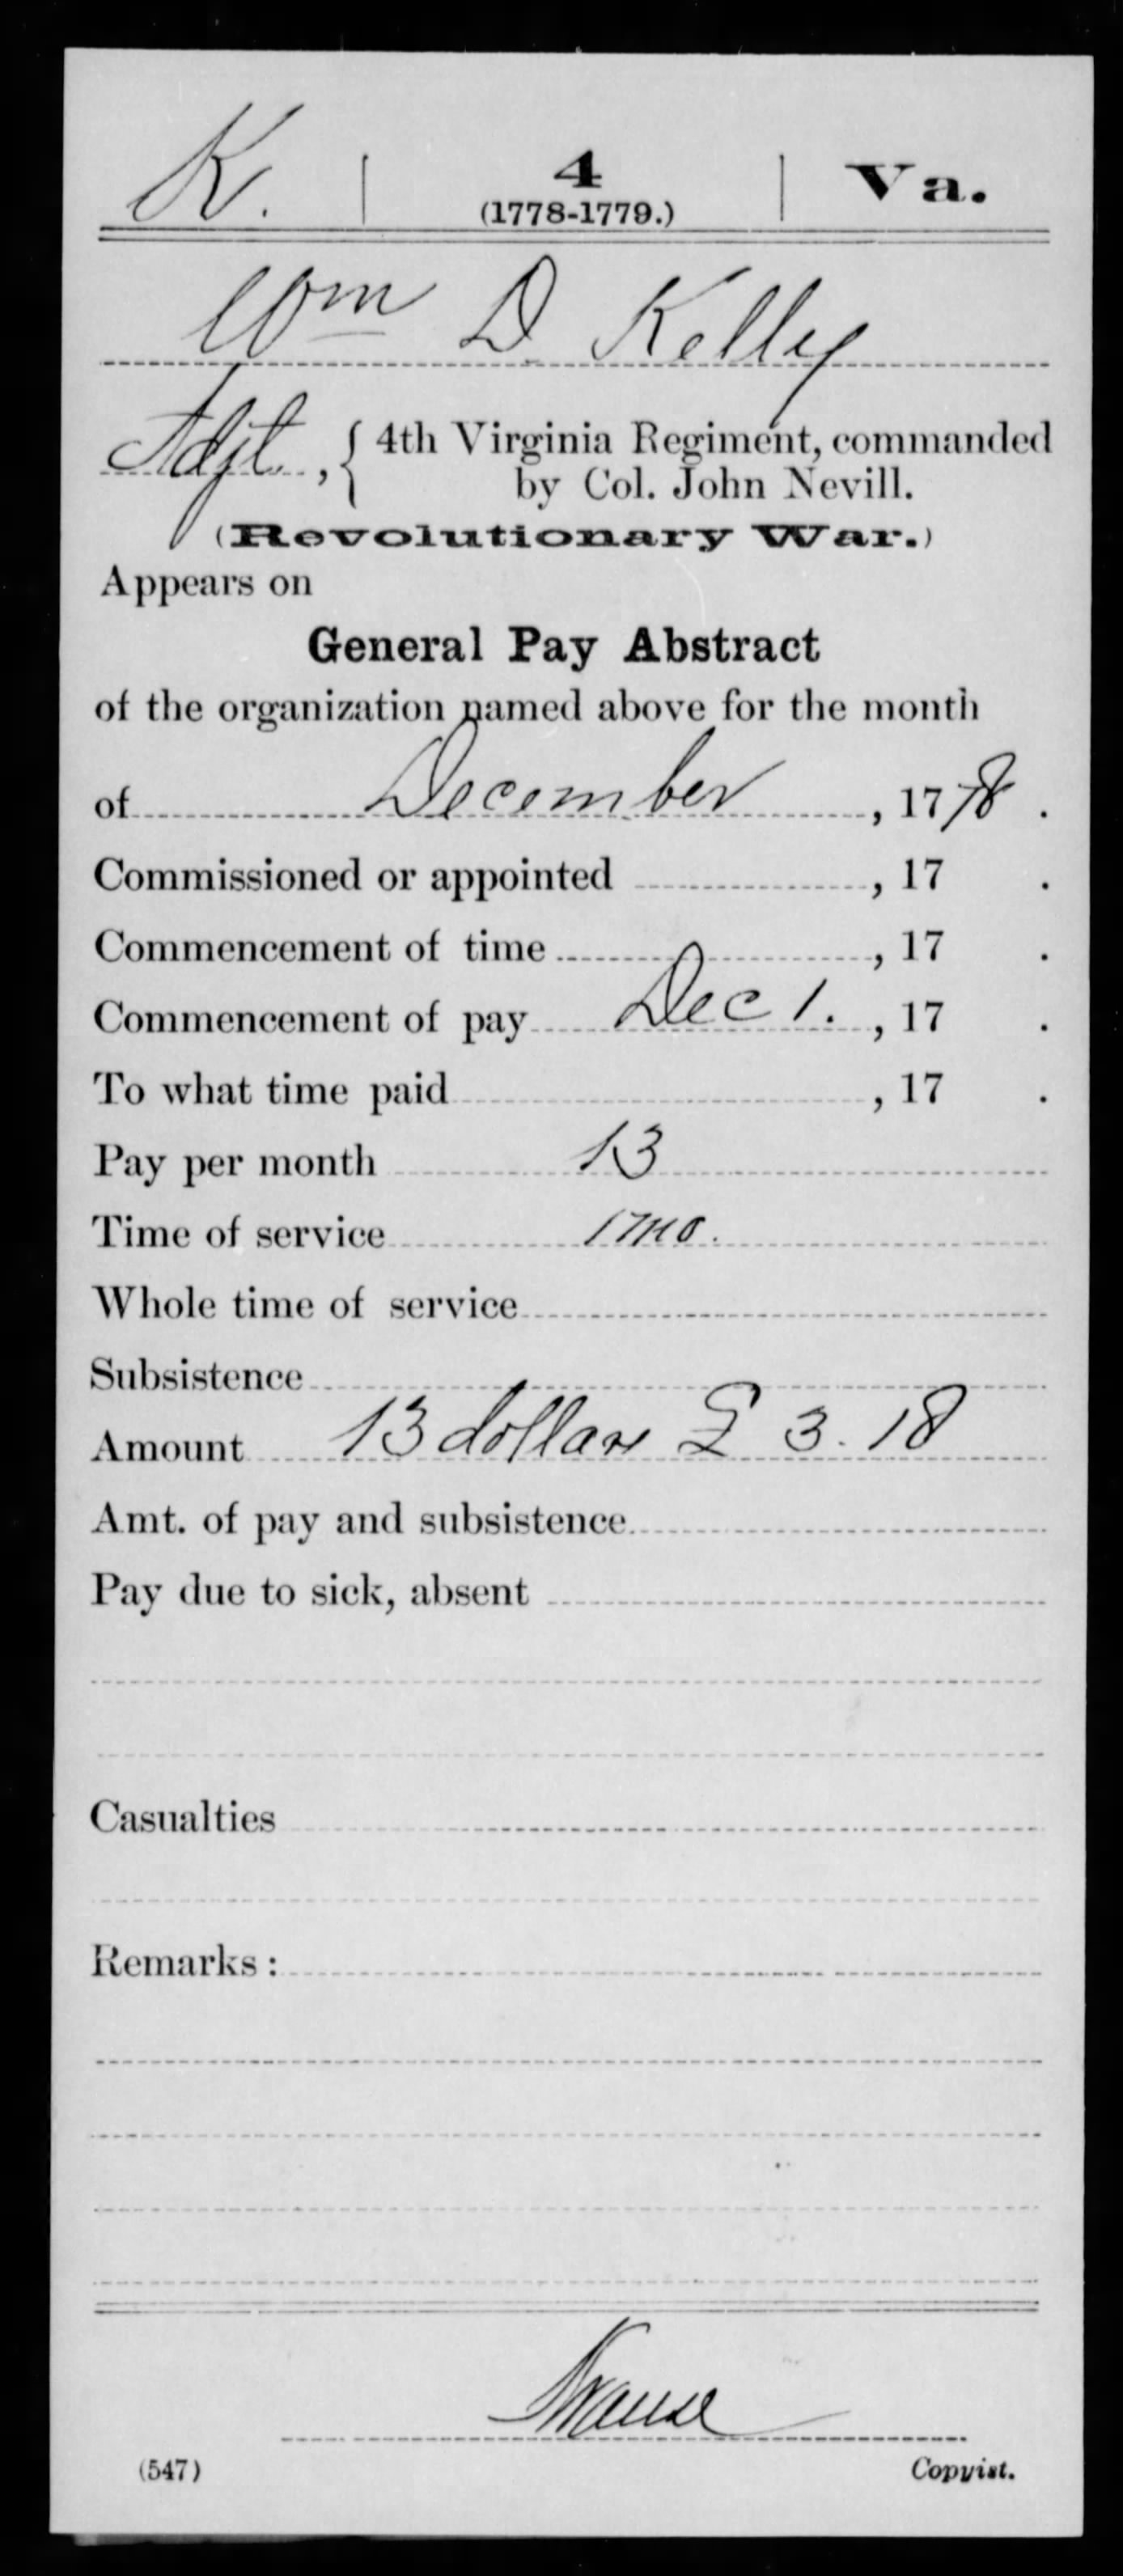 K. | 4 | Va.
(1778-1779.)
Wm D. Kelley
Adjt., { 4th Virginia Regiment, commanded
by Col. John Nevill.
(Revolutionary War.)
Appears on
General Pay Abstract
of the organization named above for the month
of December, 1778.
Commissioned or appointed , 17 .
Commencement of time , 17 .
Commencement of pay Dec 1. , 17 .
To what time paid , 17 .
Pay per month 13
Time of service 1 mo.
Whole time of service
Subsistence
Amount 13 dollars £ 3. 18
Amt. of pay and subsistence
Pay due to sick, absent
Casualties
Remarks:
(547) Copyist.